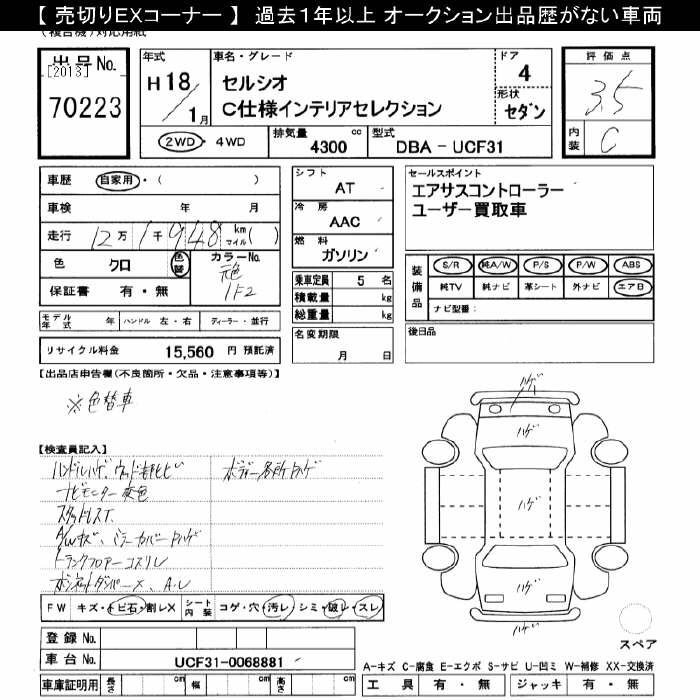 【 売切りEXコーナー 】 過去1年以上 オークション出品歴がない車両
(複合機)対応用紙
出品No.
[2013]
70223
年式
H 18 / 1月
車名・グレード
セルシオ
C仕様インテリアセレクション
ドア
4
形状
セダン
評価点
3.5
内装
C
2WD・4WD
排気量 cc
4300
型式
DBA - UCF31
車歴 自家用・( )
車検 年 月
走行 12万 1千948 km マイル( )
色 クロ 色替
カラーNo.
元色
1F2
保証書 有・無
モデル年式 年 ハンドル 左・右 ディーラー・並行
リサイクル料金 15,560 円 預託済
シフト
AT
冷房
AAC
燃料
ガソリン
乗車定員 5 名
積載量 kg
総重量 kg
名変期限
月 日
セールスポイント
エアサスコントローラー
ユーザー買取車
装備品
S/R 純A/W P/S P/W ABS
純TV 純ナビ 革シート 外ナビ エアB
ナビ型番:
後日品
【出品店申告欄(不良箇所・欠品・注意事項等)】
※色替車
【検査員記入】
ハンドルハゲ、ウッド劣化ヒビ
ボディー各所ハゲ
ナビモニター変色
スタッドレスT
A/Wキズ、ミラーカバーハゲ
トランクフロアーコスリレ
ボンネットダンパーX、A・レ
FW キズ・トビ石・割レX シート内装 コゲ・穴・汚レ・シミ・破レ・スレ
登録No.
車台No. UCF31-0068881
車庫証明用 長さ cm 幅 cm 高さ cm
ハゲ
ハゲ
ハゲ
ハゲ
ハゲ
スペア
A-キズ C-腐食 E-エクボ S-サビ U-凹ミ W-補修 XX-交換済
工具 有・無 ジャッキ 有・無